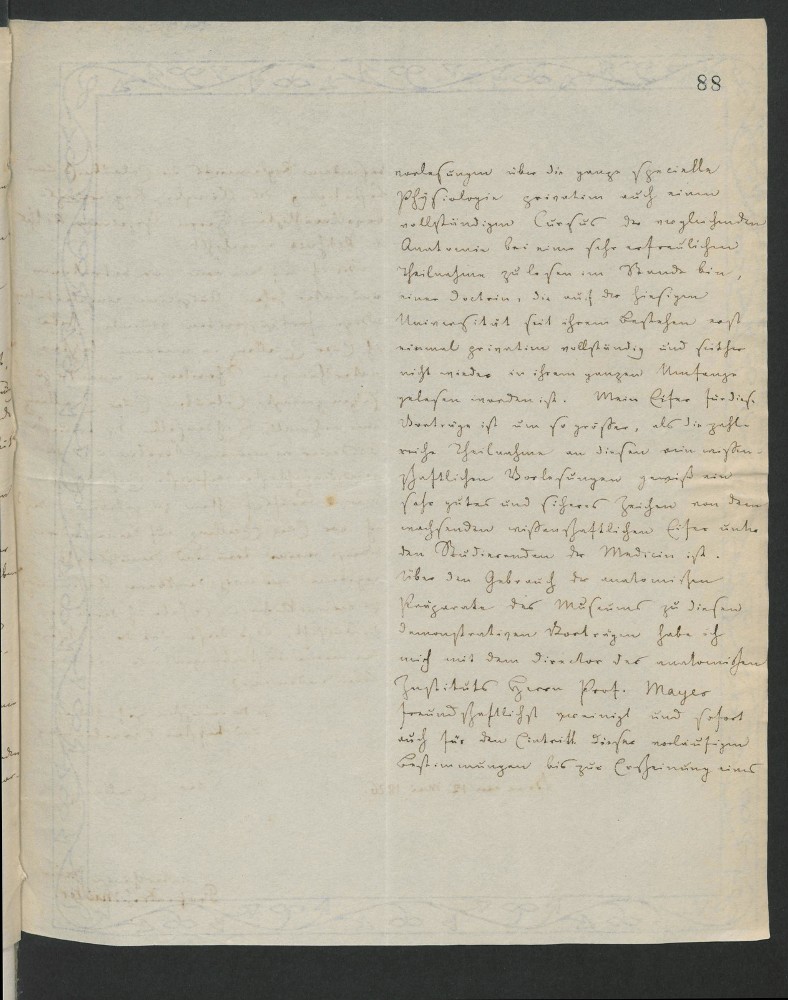 88
vorlesungen über die ganze specielle
Physiologie privatim auch einen
vollständigen Cursus der vergleichenden
Anatomie bei einer sehr erfreulichen
Theilnahme zu lesen im Stande bin,
einer Doctrin, die auf der hiesigen
Universität seit ihrem Bestehen erst
einmal privatim vollständig und seither
nicht wieder in ihrem ganzen Umfange
gelesen worden ist. Mein Eifer für diese
Vorträge ist um so größer, als die zahl-
reiche Theilnahme an diesen rein wissen-
schaftlichen Vorlesungen gewiß ein
sehr gutes und sicheres Zeichen von dem
wachsenden wissenschaftlichen Eifer unter
den Studierenden der Medicin ist.
Über den Gebrauch der anatomischen
Präparate des Museums zu diesen
demonstrativen Vorträgen habe ich
mich mit dem Director des anatomischen
Instituts Herrn Prof. Mayer
freundschaftlichst vereinigt und sofort
auch für den Eintritt dieser vorläufigen
Bestimmungen bis zur Erscheinung eines